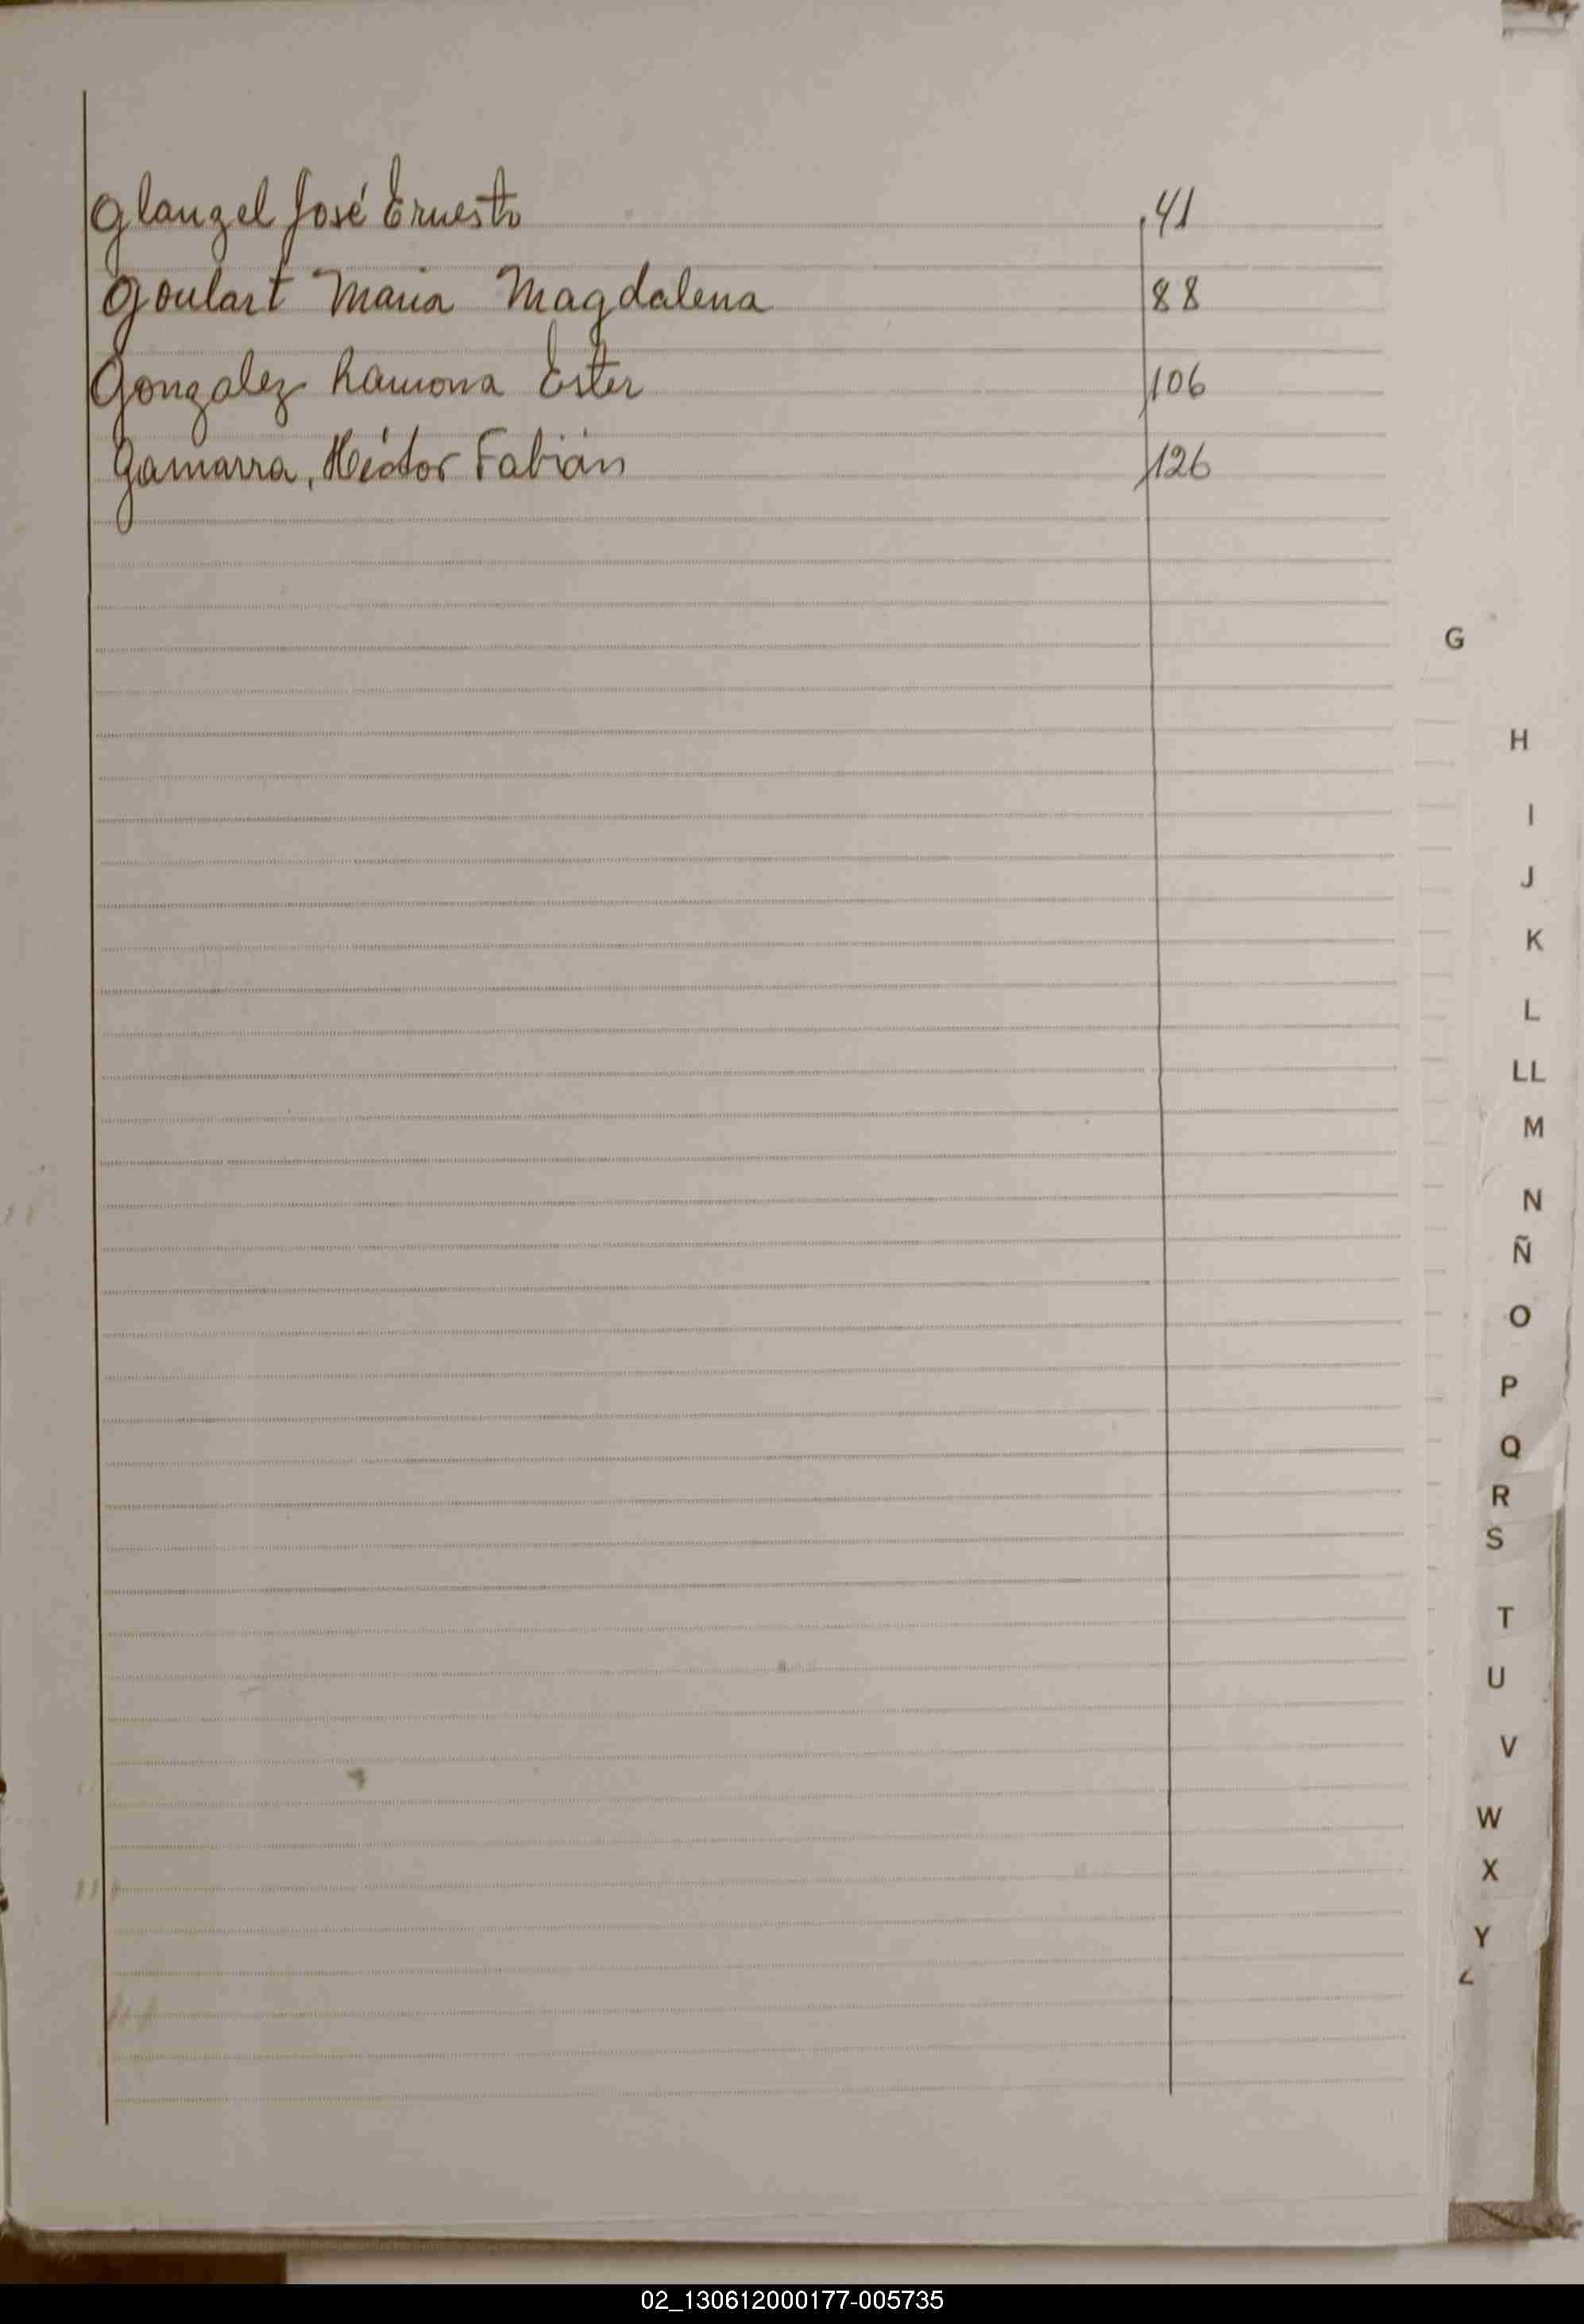 Glanzel José Ernesto 41
Goulart Maria Magdalena 88
Gonzalez Ramona Ester 106
Gamarra, Héctor Fabián 126
G
H
I
J
K
L
LL
M
N
Ñ
O
P
Q
R
S
T
U
V
W
X
Y
Z
02_130612000177-005735